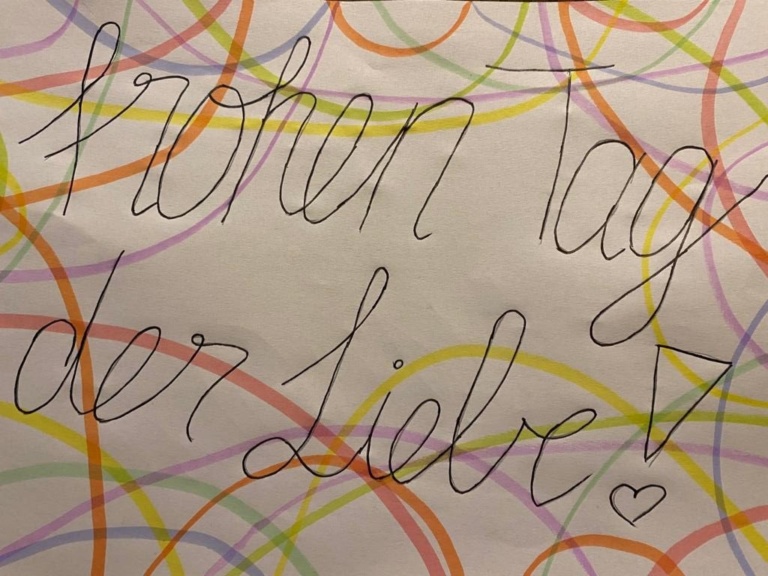 frohen Tag
der Liebe!